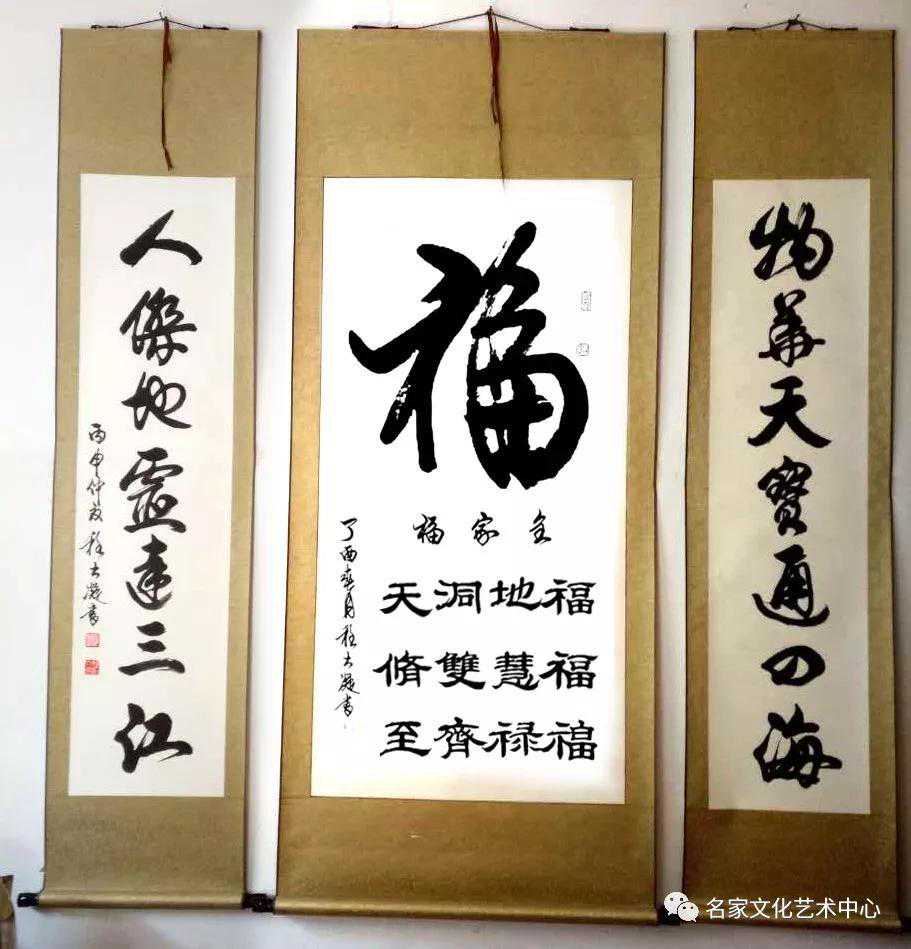 物華天寶通四海
福
全家福
福地洞天
福慧雙脩
福禄齊至
丁酉春月程大凝書
人傑地靈達三江
丙申仲秋程大凝書
名家文化艺术中心